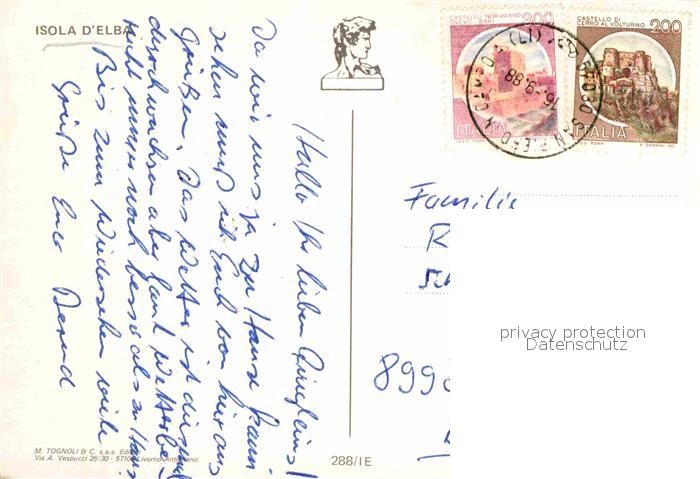 ISOLA D'ELBA
Hallo Ihr lieben
Da wir uns ja zu Hause kaum
sehen muß ich Euch von hier aus
grüßen. Das Wetter ist
durchwachsen aber laut
nicht immer noch besser als zu Haus
Bis zum Wiedersehen viele
Grüße Euer Bernd
M. TOGNOLI & C. s.a.s. Editori
Via A. Vespucci 26/30 - 57100 Livorno
288/IE
CASTELLO NORMANNO
SVEVO BARI
200
ITALIA
CASTELLO DI
CERRO AL VOLTURNO
200
ITALIA
16.-9.88
(LI)
Familie
R
899
privacy protection
Datenschutz